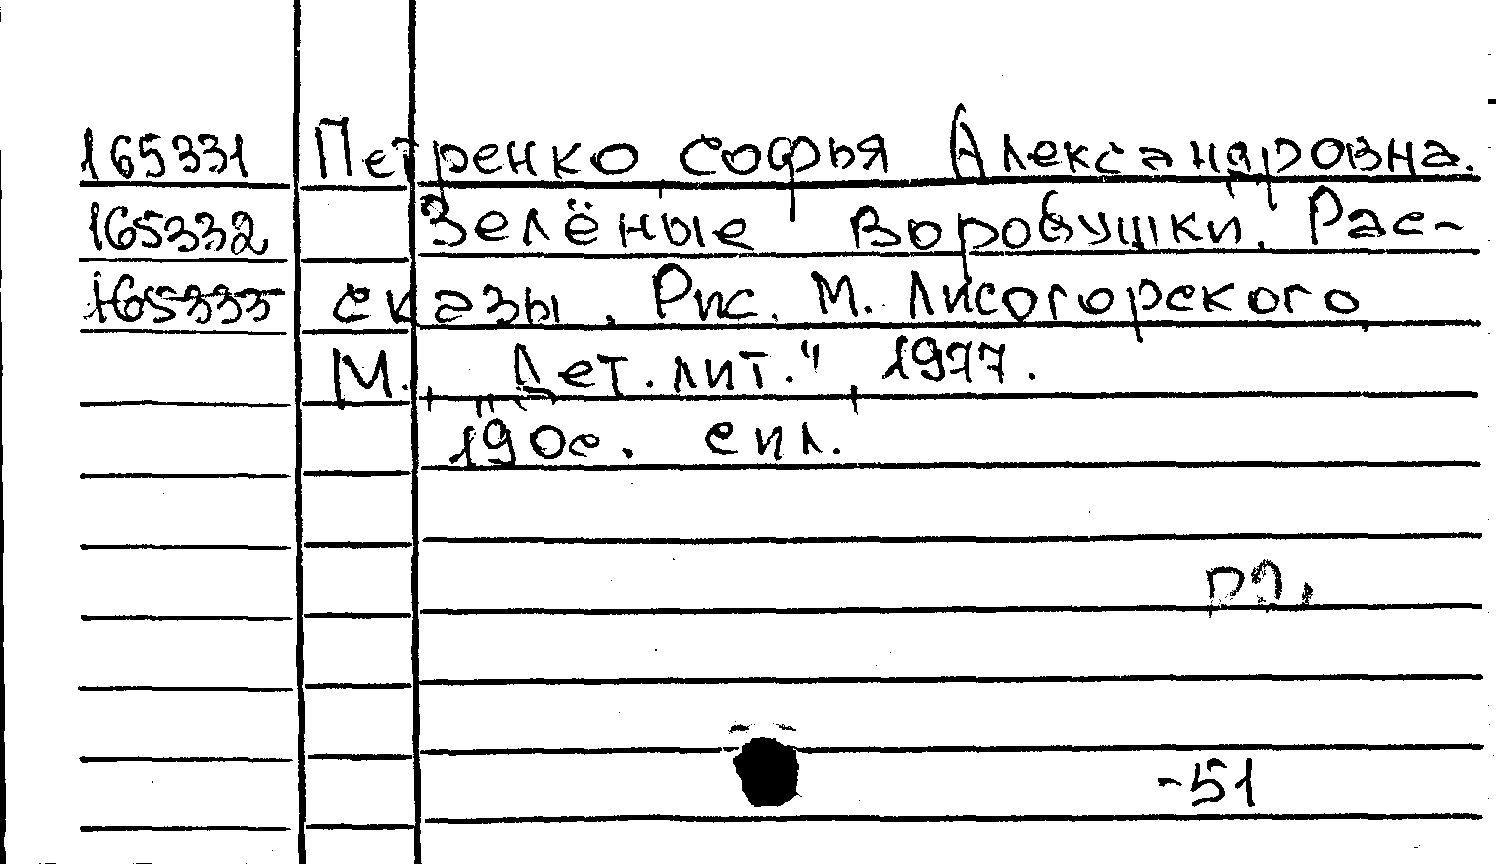 165331 Петренко Софья Александровна.
165332 Зелёные воробушки. Рас-
165333 сказы. Рис. М. Лисогорского,
М., "Дет. лит.", 1977.
190с. с ил.
Р2,
-51